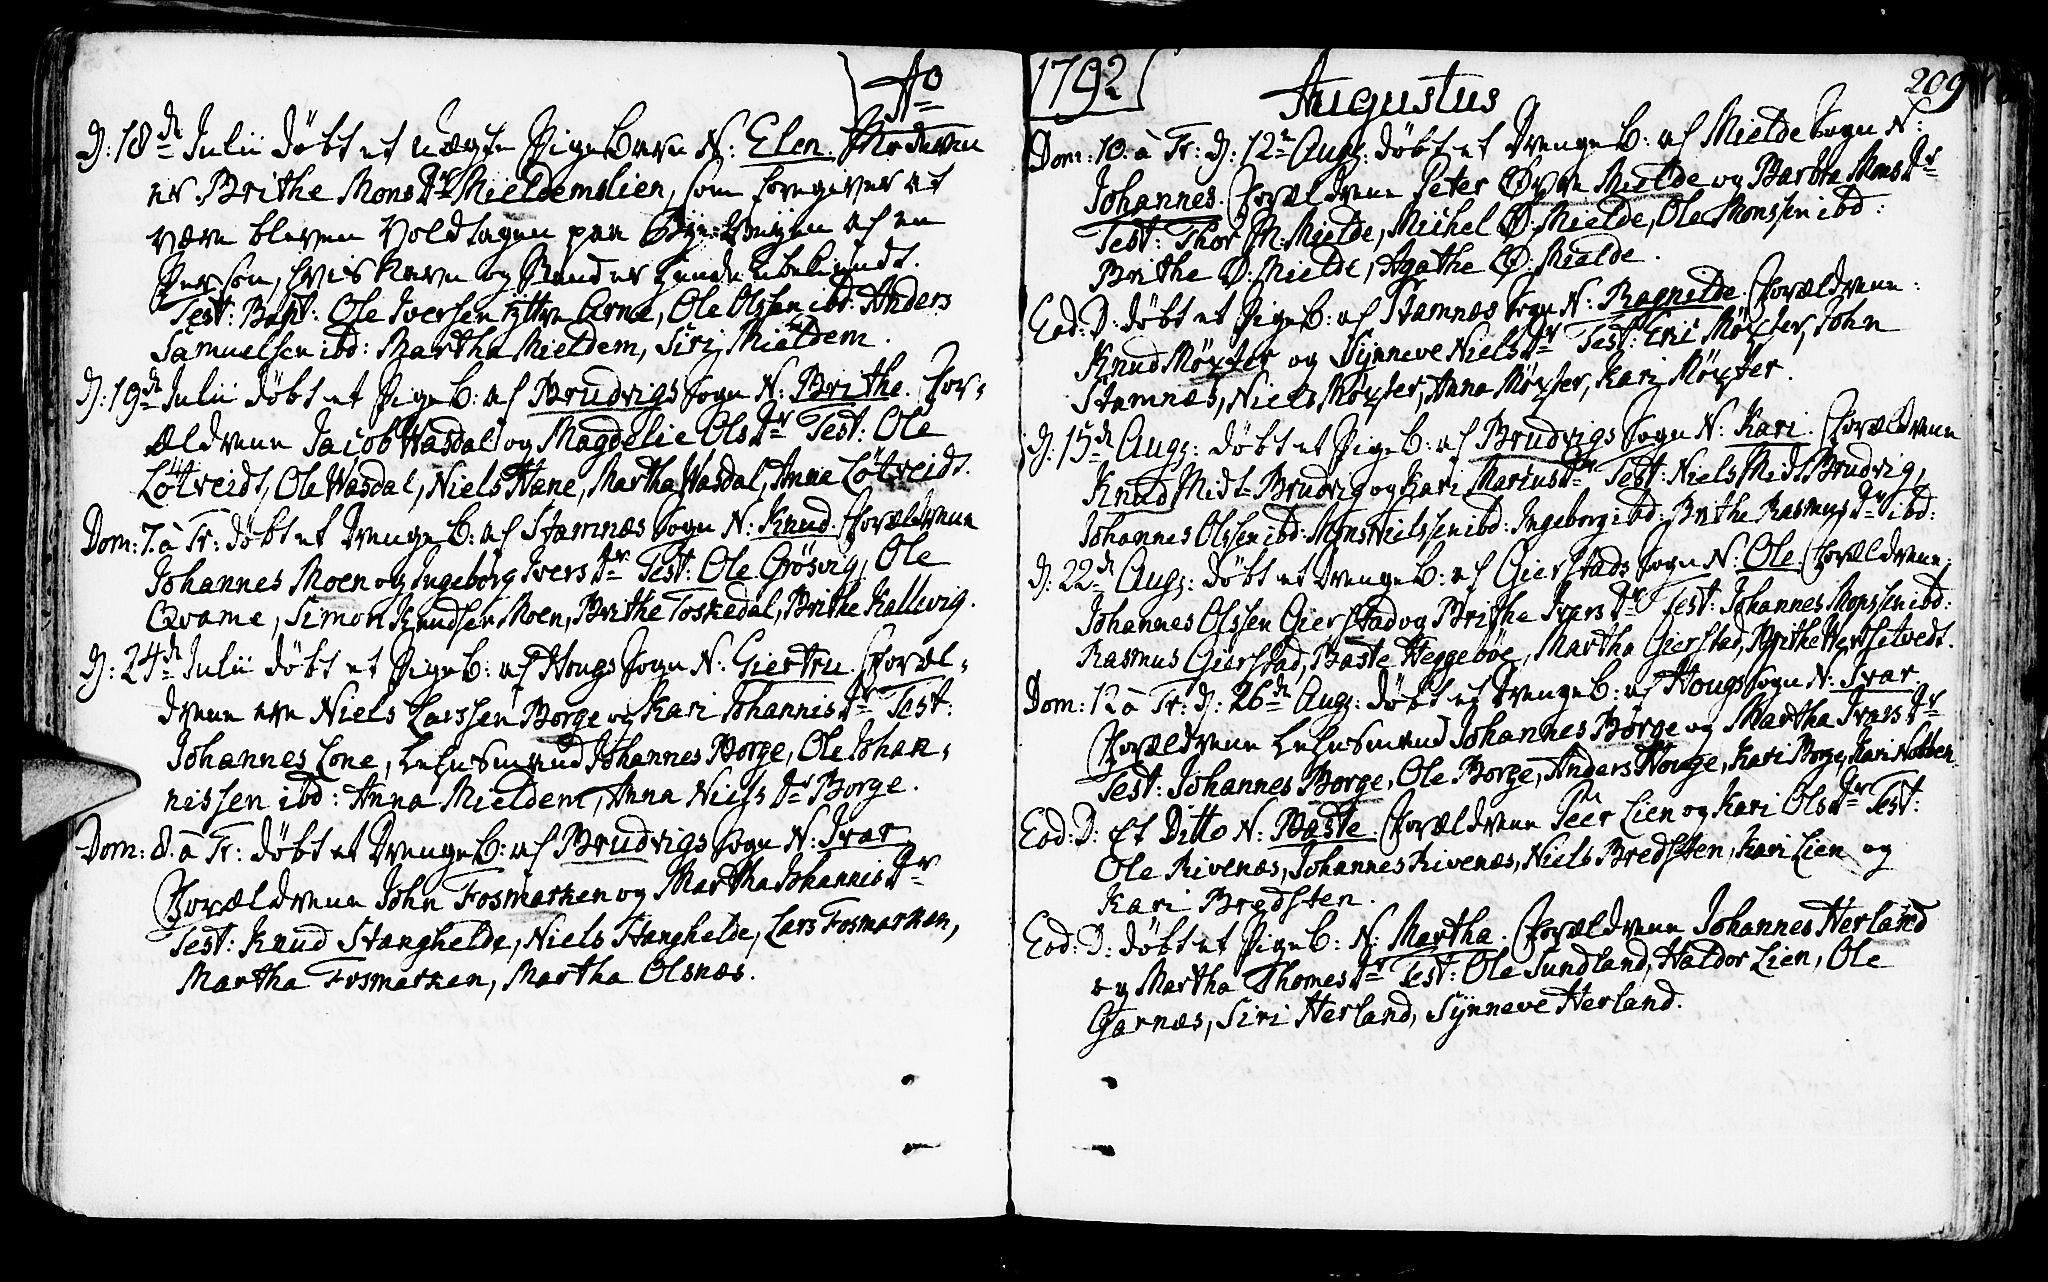 Ao
D: 18de Julii døbt et uægte Pigebarn N: Elen. Moderen
er Brithe MonsDr Mieldemslien, som foregiver at
være bleven Voldtagen paa Bye-Veyen af en
Person, hvis Navn og Stand er hende ubekiendt.
Test: Bapt: Ole Iversen Yttre Arne, Ole Olssen ibd: Anders
Samuelsen ibd: Martha Mieldem, Siri Mieldem.
D: 19de Julii døbt et Pigeb: af Brudvigs Sogn N: Brithe. For-
ældrene Jacob Wasdal og Magdelie OlsDr Test: Ole
Løtveidt, Ole Wasdal, Niels Hane, Martha Wasdal, Anna Løtveidt.
Dom: 7. à Tr: døbt et Drengeb: af Stamnæs Sogn N: Knud. Forældrene
Johannes Moen og Ingeborg IversDr Test: Ole Grøsvig, Ole
Qvame, Simon Knudsen Moen, Brithe Toskedal, Brithe Kallevig.
D: 24de Julii døbt et Pigeb: af Hougs Sogn N: Giertru. Foræl-
drene ere Niels Larssen Borge og Kari JohannisDr Test:
Johannes Lone, Lehnsmand Johannes Borge, Ole Johan-
nissen ibd: Anna Mieldem, Anna NielsDr Borge.
Dom: 8. à Tr: døbt et Drengeb: af Brudvigs Sogn N: Ivar
Forældrene John Fosmarken og Martha JohannisDr
Test: Knud Stanghelde, Niels Stanghelde, Lars Fosmarken,
Martha Fosmarken, Martha Olsnæs.
1792
Augustus
209
Dom: 10. à Tr: D: 12te Aug: døbt et Drengeb: af Mielde Sogn N:
Johannes. Forældrene Peter Øvre Mielde og Barbra MonsDr
Test: Thor M: Mielde, Michel Ø: Mielde, Ole Monssen ibd:
Brithe Ø: Mielde, Agathe Ø: Mielde.
Eod: D: døbt et Pigeb: af Stamnæs Sogn N: Ragnilde. Forældrene
Knud Møxter og Synneve NielsDr Test: Eric Møxter, John
Stamnæs, Niels Møxter, Anna Møxter, Kari Møxter.
D: 15de Aug: døbt et Pigeb: af Brudvigs Sogn N: Kari. Forældrene
Knud Midt-Brudvig og Kari MariusDr Test: Niels Midt Brudvig,
Johannes Olssen ibd: Mons Nielssen ibd: Ingeborg ibd: Brithe RasmusDr ibd:
D: 22de Aug: døbt et Drengeb: af Gierstads Sogn N: Ole. Forældrene
Johannes Olssen Gierstad og Brithe IvarsDr Test: Johannes Monssen ibd:
Rasmus Gierstad, Baste Heggebøe, Martha Gierstad, Brithe Hersetvedt.
Dom: 12 à Tr: D: 26de Aug: døbt et Drengeb: af Hougs Sogn N: Ivar.
Forældrene Lehnsmand Johannes Børge og Martha IvarsDr
Test: Johannes Borge, Ole Borge, Anders Houge, Kari Borge, Kari Nobben
Eod: D: Et Ditto N: Baste Forældrene Peer Lien og Kari OlsDr Test:
Ole Rivenæs, Johannes Rivenæs, Niels Bredsten, Kari Lien og
Kari Bredsten.
Eod: D: døbt et Pigeb: N: Martha. Forældrene Johannes Herland
og Martha ThomesDr Test: Ole Sundland, Haldor Lien, Ole
Garnæs, Siri Herland, Synneve Herland.